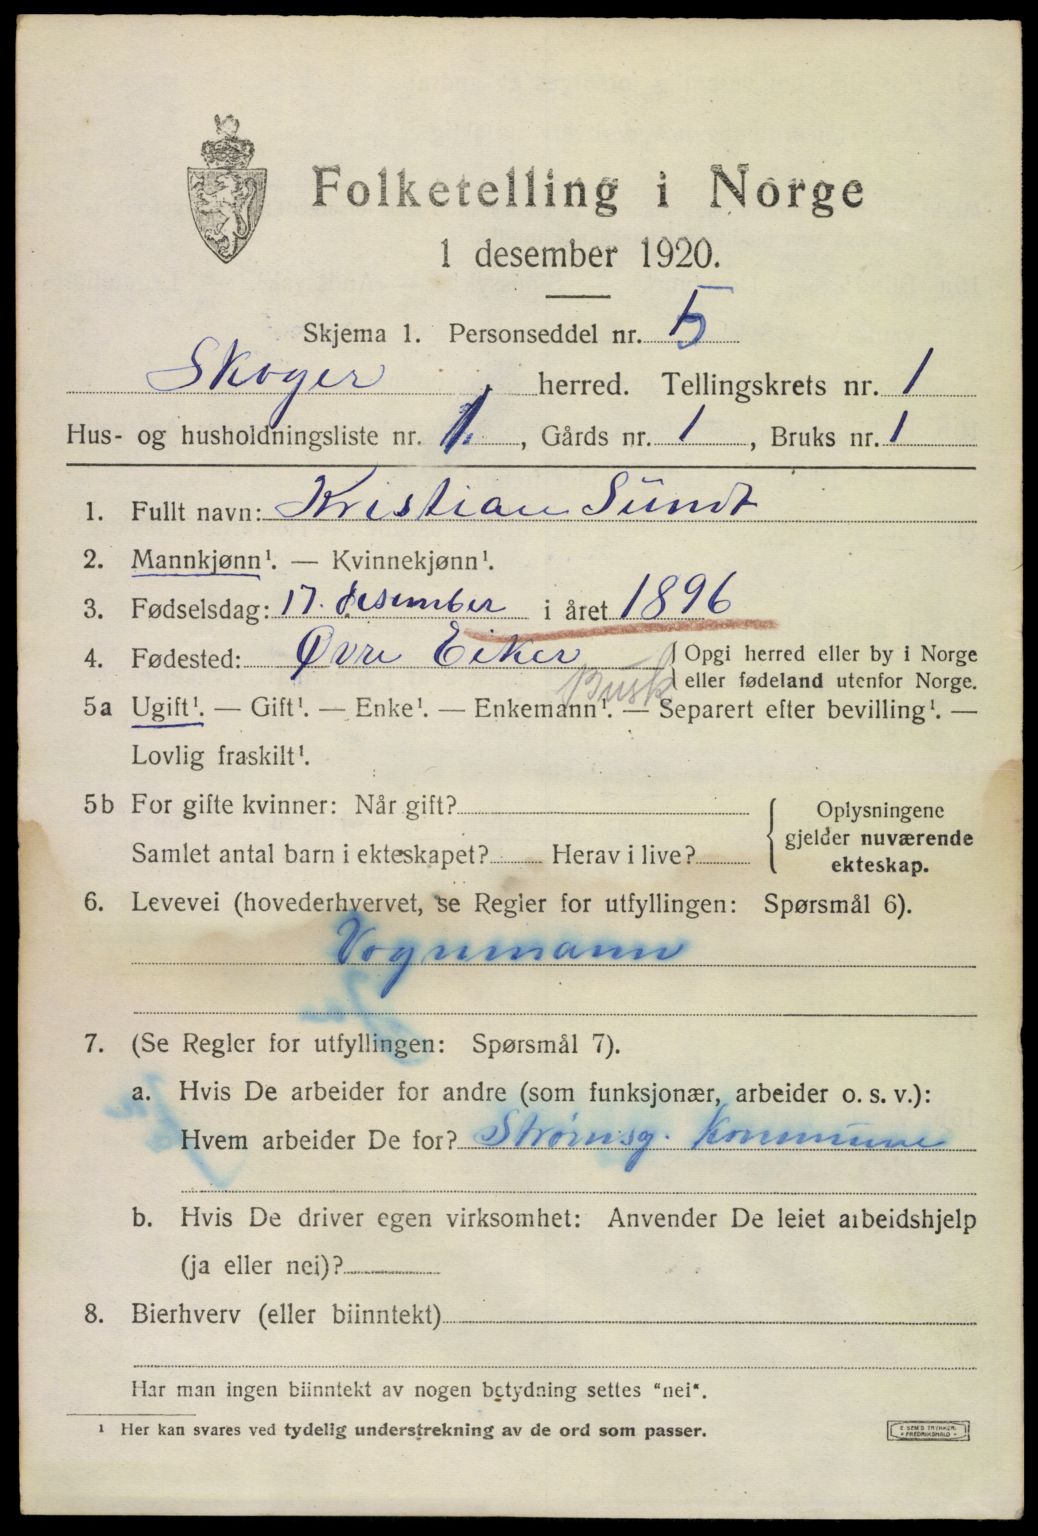 Folketelling i Norge
1 desember 1920.
Skjema 1. Personseddel nr. 5
Skoger herred. Tellingskrets nr. 1
Hus- og husholdningsliste nr. 1, Gårds nr. 1, Bruks nr. 1
1. Fullt navn: Kristian Sündt
2. Mannkjønn¹. — Kvinnekjønn¹.
3. Fødselsdag: 17. desember i året 1896
4. Fødested: Øvre Eiker Opgi herred eller by i Norge
Busk eller fødeland utenfor Norge.
5a Ugift¹. — Gift¹. — Enke¹. — Enkemann¹. — Separert efter bevilling¹. —
Lovlig fraskilt¹.
5b For gifte kvinner: Når gift? Oplysningene
gjelder nuværende
Samlet antal barn i ekteskapet? Herav i live? ekteskap.
6. Levevei (hovederhvervet, se Regler for utfyllingen: Spørsmål 6).
Vognmann
7. (Se Regler for utfyllingen: Spørsmål 7).
a. Hvis De arbeider for andre (som funksjonær, arbeider o. s. v.):
Hvem arbeider De for? Strømsg. Kommune
b. Hvis De driver egen virksomhet: Anvender De leiet arbeidshjelp
(ja eller nei)?
8. Bierhverv (eller biinntekt)
Har man ingen biinntekt av nogen betydning settes "nei".
¹ Her kan svares ved tydelig understrekning av de ord som passer.
E SEM'S TRYKKERI
FREDRIKSHALD